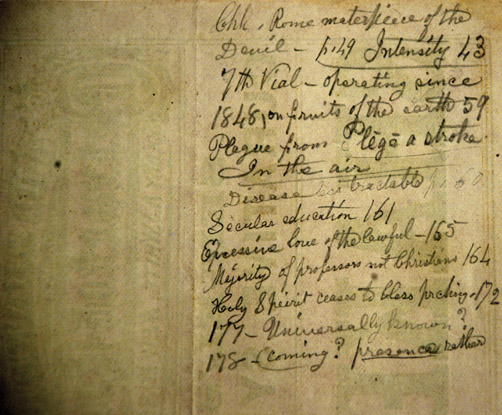 Chh. Rome materpiece of the
Devil – p. 49 Intensity 43
7th Vial – operating since
1848, on fruits of the earth 59
Plague from Plēgē a stroke.
In the air
Disease tractable p. 60
Secular education 161
Excessive love of the lawful – 165
Majority of professors not Christians 164
Holy Spirit ceases to bless prching. 172
177 – Universally known?
178 – Coming? presence rather